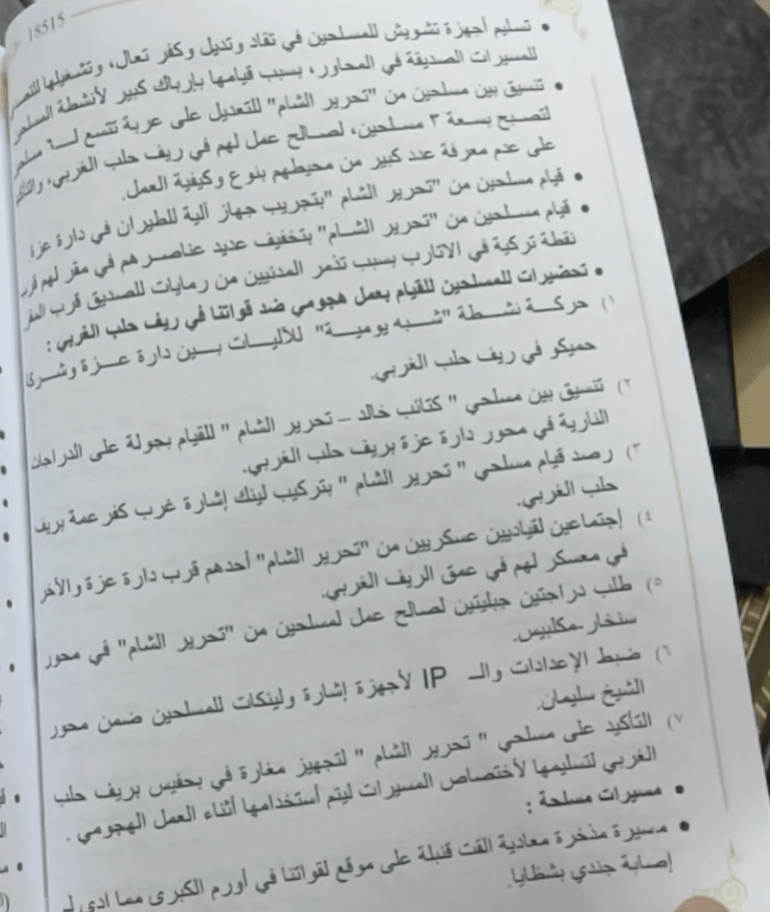 18515
• تسليم أجهزة تشويش للمسلحين في تقاد وتديل وكفر تعال، وتشغيلها
للمسيرات الصديقة في المحاور، بسبب قيامها بإرباك كبير لأنشطة
• تنسيق بين مسلحين من "تحرير الشام" للتعديل على عربة تتسع لـ ٦
لتصبح بسعة ٣ مسلحين، لصالح عمل لهم في ريف حلب الغربي،
على عدم معرفة عدد كبير من محيطهم بنوع وكيفية العمل.
• قيام مسلحين من "تحرير الشام "بتجريب جهاز آلية للطيران في دارة عزة
• قيام مسلحين من "تحرير الشام" بتخفيف عديد عناصرهم في مقر لهم قرب
نقطة تركية في الاتارب بسبب تذمر المدنيين من رمايات للصديق قرب
• تحضيرات للمسلحين للقيام بعمل هجومي ضد قواتنا في ريف حلب الغربي :
١) حركة نشطة "شبه يومية" للآليات بين دارة عزة
حميكو في ريف حلب الغربي.
٢) تنسيق بين مسلحي " كتائب خالد – تحرير الشام " للقيام بجولة على الدراجات
النارية في محور دارة عزة بريف حلب الغربي.
٣) رصد قيام مسلحي " تحرير الشام " بتركيب لينك إشارة غرب كفر عمة بريف
حلب الغربي.
٤) إجتماعين لقياديين عسكريين من "تحرير الشام" أحدهم قرب دارة عزة والأخر
في معسكر لهم في عمق الريف الغربي.
٥) طلب دراجتين جبليتين لصالح عمل لمسلحين من "تحرير الشام" في محور
سنخار-مكلبيس.
٦) ضبط الإعدادات والـ IP لأجهزة إشارة ولينكات للمسلحين ضمن محور
الشيخ سليمان.
٧) التأكيد على مسلحي " تحرير الشام " لتجهيز مغارة في بحفيس بريف حلب
الغربي لتسليمها لأختصاص المسيرات ليتم أستخدامها أثناء العمل الهجومي .
• مسيرات مسلحة :
• مسيرة مذخرة معادية القت قنبلة على موقع لقواتنا في أورم الكبرى مما ادى لـ
إصابة جندي بشظايا.